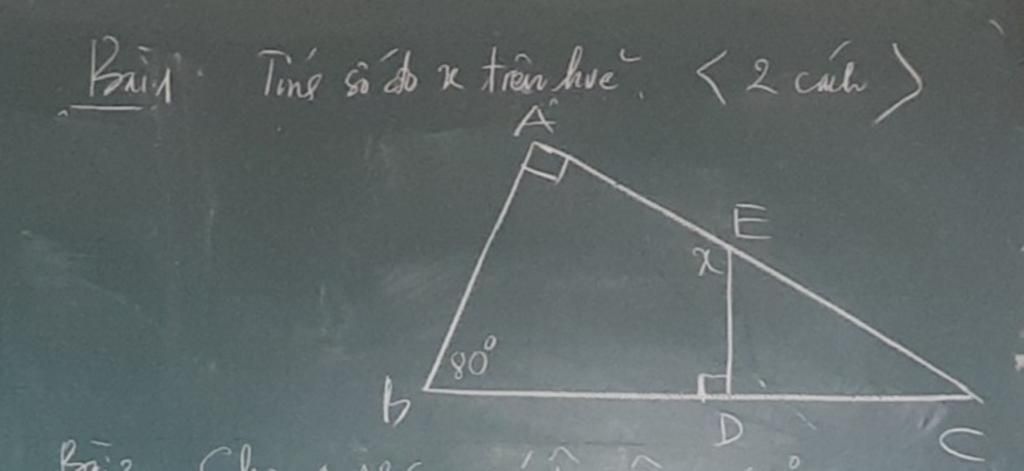 Bài 1. Tính số đo x trên hvẽ. < 2 cách >
A
E
x
80°
B
D
C
Bài 2